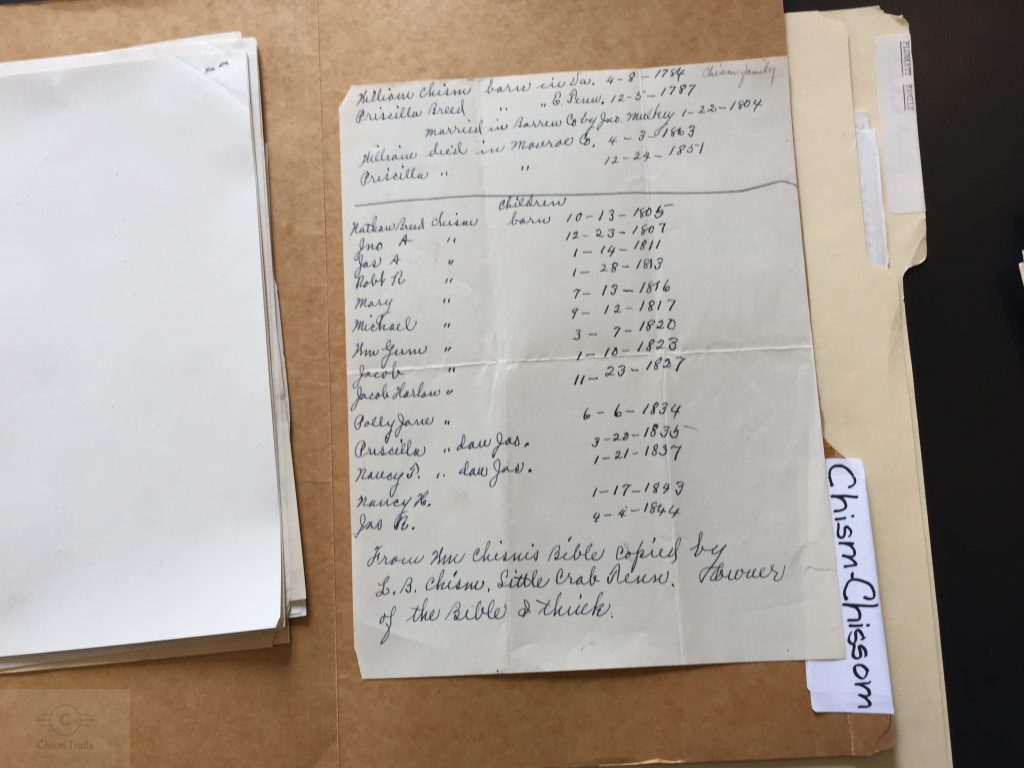 Chism family
William Chism born in Va. 4-8-1784
Priscilla Breed " " E. Tenn. 12-5-1787
married in Barren Co by Jno. Mulkey 1-22-1804
William died in Monroe Co. 4-3-1863
Priscilla " " 12-24-1851
Children
Nathan Breed Chism born 10-13-1805
Jno A " 12-23-1807
Jas A " 1-14-1811
Robt R " 1-28-1813
Mary " 7-13-1816
Michael " 9-12-1817
Wm Gum " 3-7-1820
Jacob " 1-10-1823
Jacob Harlow " 11-23-1827
Polly Jane " 6-6-1834
Priscilla " dau Jas. 3-20-1835
Nancy P. " dau Jas. 1-21-1837
Nancy H. 1-17-1843
Jas R. 4-4-1844
From Wm Chism's Bible copied by
L. B. Chism, Little Crab Tenn.
of the Bible I think.
Chism-Chissom
C
Chism Trails